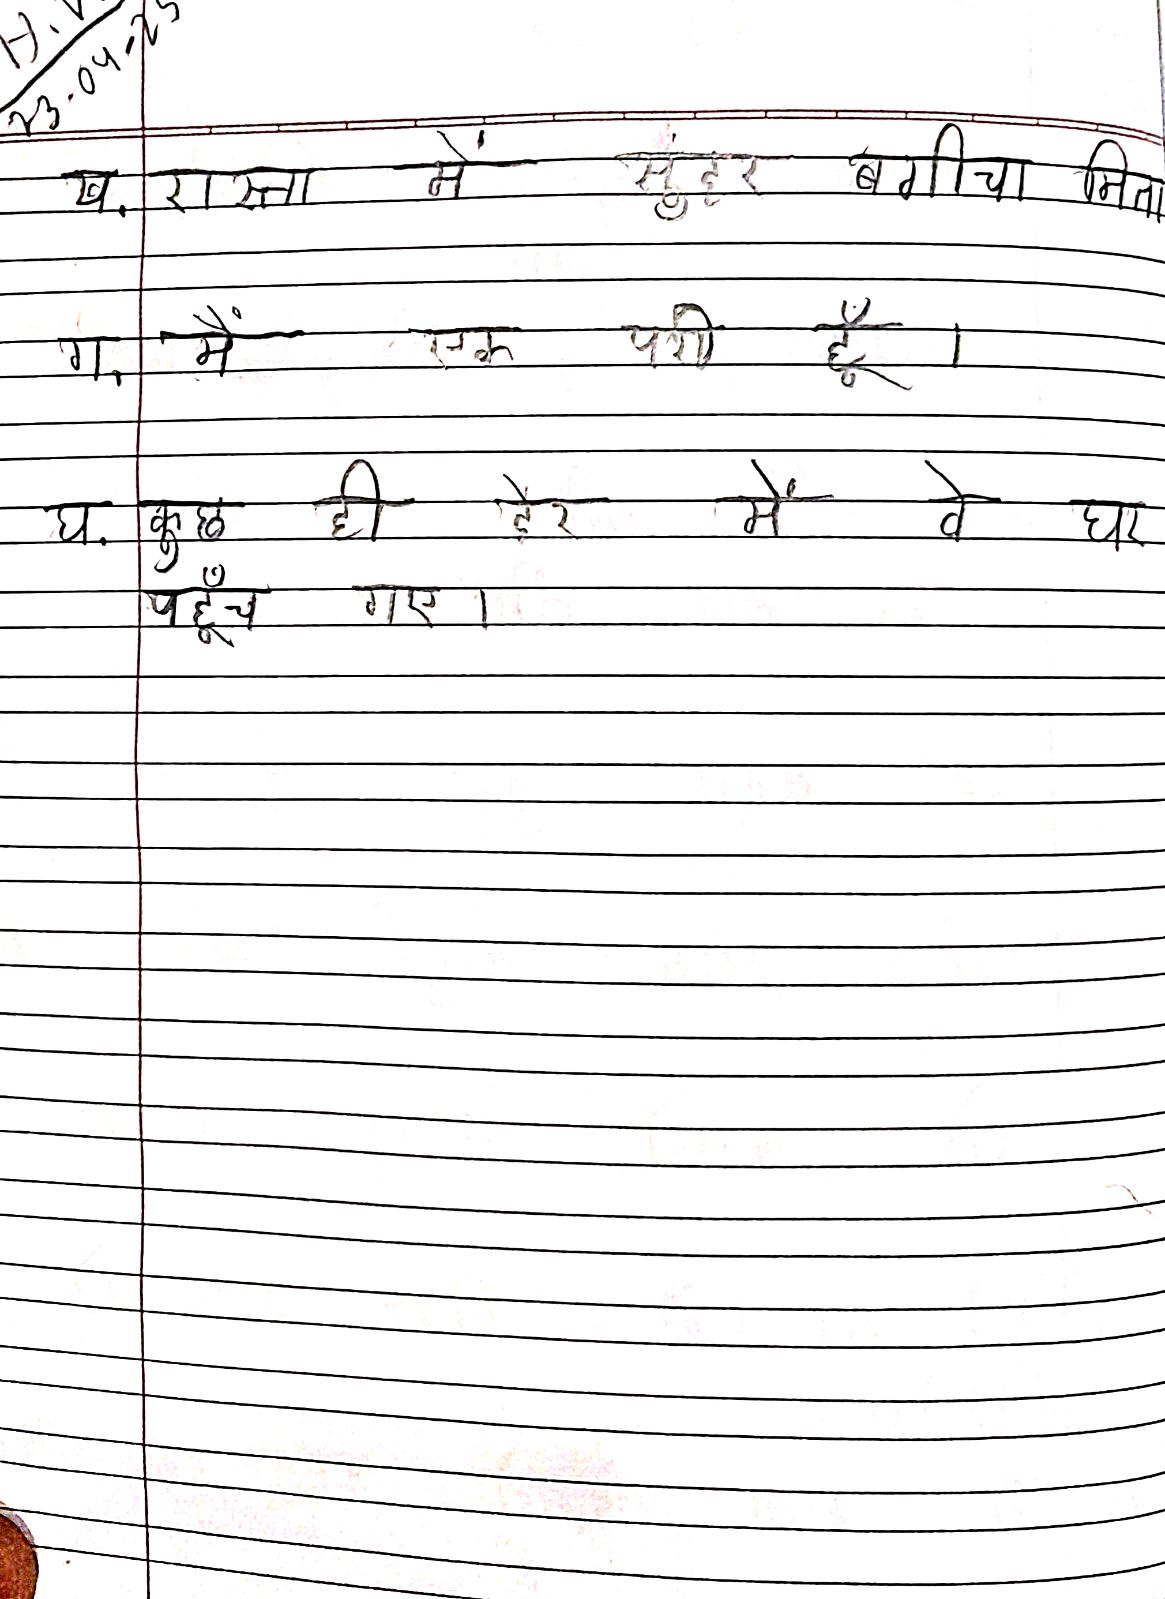 H.W
23-04-25
ख. रास्ता में सुंदर बगीचा मिला
ग. मैं एक परी हूँ ।
घ. कुछ ही देर में वे घर
पहूँच गए ।